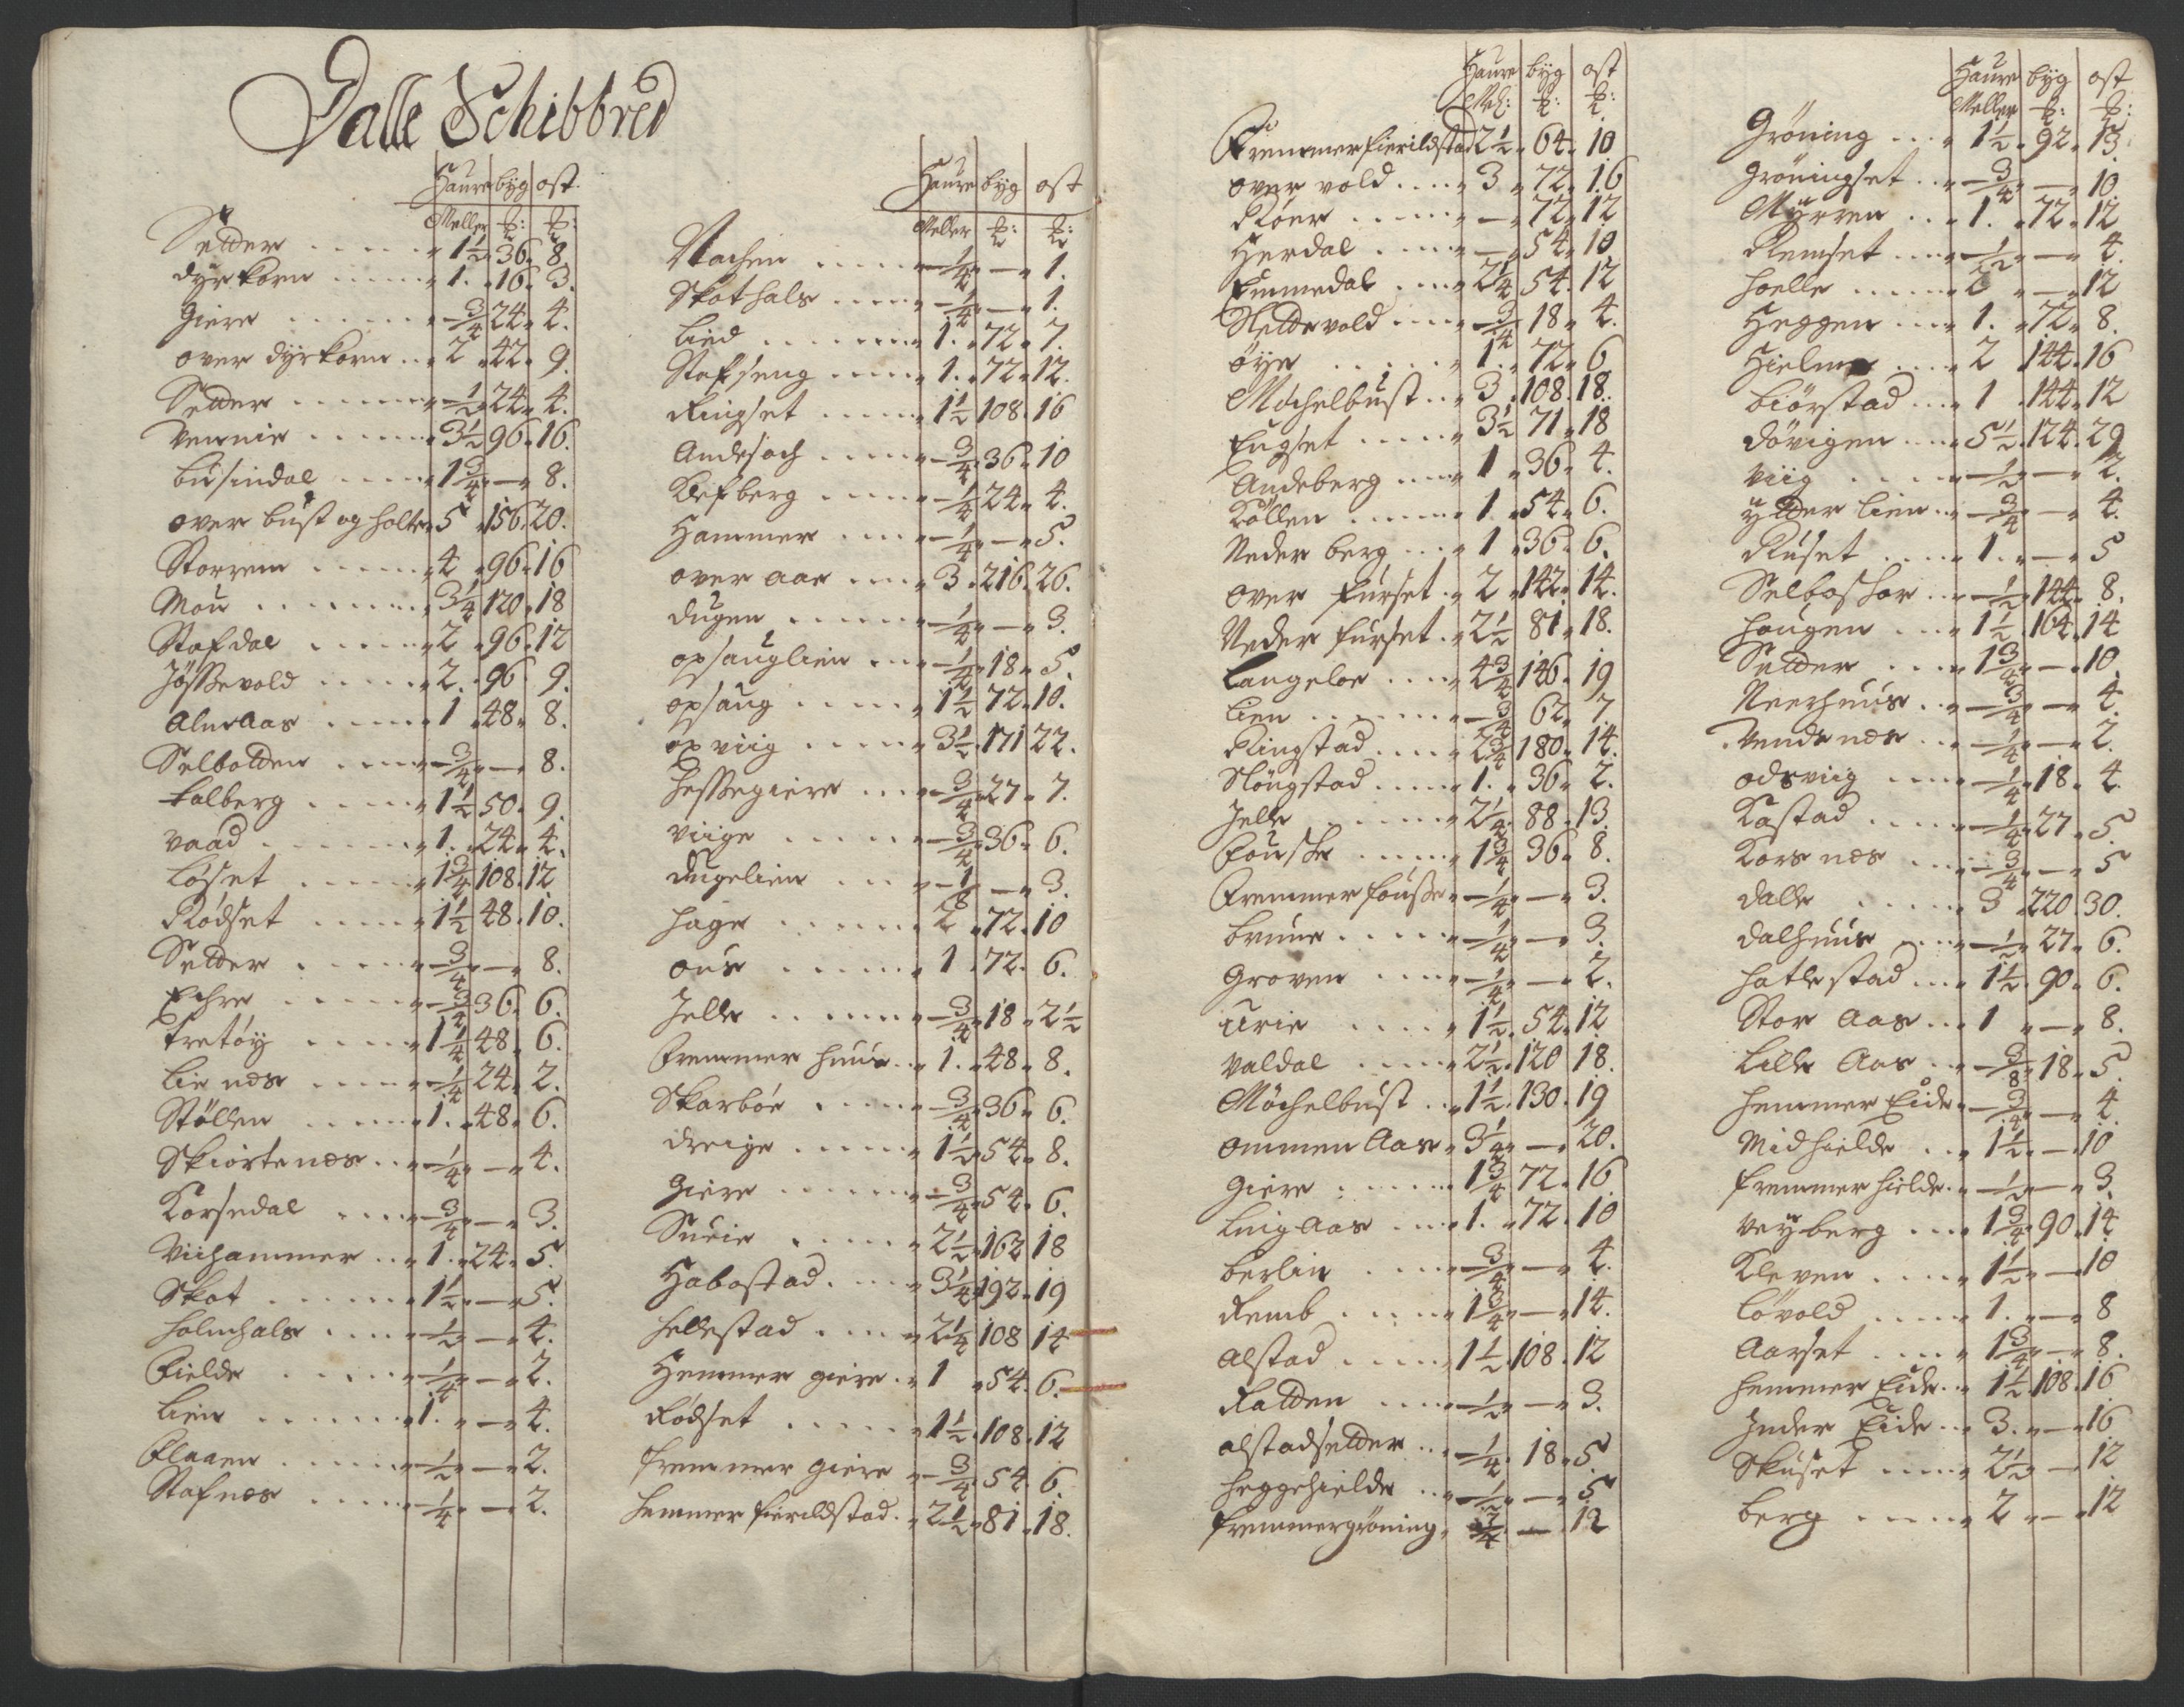 Dalle Schibbred
Haure byg ost
Meller ℔: ℔:
Setter 1½ 36 8.
dyrkorn 1. 16 3.
giere ¾ 24 4.
over dyrkorn 2 42 9.
Setter ½ 24 4.
Vemnie 3½ 96 16.
busindal 1¾ — 8.
over bust og holte 5 156 20.
Storrem 4 96 16
Mou 3¼ 120 18
Stafdal 2 96 12
Jøssevold 2. 96 9.
AlneAas 1 48 8.
Selbotten ¾ — 8.
talberg 1½ 50 9.
vaad 1. 24 4.
Løset 1¾ 108 12
Rødset 1½ 48 10.
Setter ¾ — 8.
Echre ¾ 36 6.
tretøy 1¼ 48 6.
Lie nes ¼ 24 2.
Støllen 1. 48 6.
Skiortenes ¼ — 4.
Korsedal ¾ — 3.
Viihammer 1. 24 5.
Skot 1½ — 5.
holmhals ½ — 4.
Fielde ¼ — 2.
Lien 1. — 4.
Flaaen ½ — 2.
Stafnes ¼ — 2.
Haure byg ost
Meller ℔: ℔:
Vachen ¼ — 1.
Skothals ¼ — 1.
Lied 1. 72 7.
Stafseng 1. 72 12.
Ringset 1½ 108 16
Andesoch ¾ 36 10
Klefberg ¼ 24 4.
Hammer ¼ — 5.
over aae 3 216 26.
dugen ¼ — 3.
opsauglien ¼ 18 5.
opsaug 1½ 72 10.
opviig 3½ 171 22.
hessegiere ¾ 27 7.
viige ¾ 36 6.
dugelien ⅛ — 3.
hage 2 72 10
ous 1 72 6.
Jelle ¾ 18 2½
Fremmer huus 1. 48 8.
Skarbøe ¾ 36 6.
dreige 1½ 54 8.
giere ¾ 54 6.
Sueie 2½ 162 18
Habostad 3¼ 192 19
hellestad 2¼ 108 14
Hemmer giere 1 54 6.
Rødset 1½ 108 12
fremmer giere ¾ 54 6.
hemmer fierildstad 2½ 81 18.
Haure byg ost
Mel: ℔: ℔:
Fremmer fierildstad 2½ 64 10
over vold 3 72 16
Røer — 72 12
Herdal — 54 10
Emmedal 2¼ 54 12
Slettevold ¾ 18 4.
øye 1. 72 6
Møchelbust 3 108 18.
Eugset 3½ 71 18
Andeberg 1 36 4.
Køllen 1. 54 6.
Neder berg 1 36 6.
over furset 2 142 14.
Neder furset 2½ 81 18.
Langeloe 4¾ 146 19
Lien ¾ 62 7
Ringstad 2¾ 180 14.
Sløugstad 1. 36 2.
Jelle 2¼ 88 13.
Fouske 1¾ 36 8.
Fremmer fouske ¼ — 3.
brune ¼ — 3.
Groven ¼ — 2.
urie 1½ 54 12
Valdal 2½ 120 18.
Møchelbust 1½ 130 19
ommen Aas 3½ — 20.
giere 1¾ 72 16
LuigAas 1. 72 10
berlin ¾ — 4.
Remb 1¾ — 14.
alstad 1½ 108 12
Ratten ½ — 3.
alstadsetter ¼ 18 5
heggehielde ½ — 5
fremmergrøning ¾ — 12
Haure byg ost
Meller ℔: ℔:
Grøning 1½ 92 13.
Grøningset ¾ — 10.
Myrren 1. 72 12
Remset ½ — 4.
hoelle 2 — 12
Heggen 1. 72 8.
Hielme 2 144 16
biørstad 1 144 12
døvigen 5½ 124 29
viig ½ — 2.
ytter lien ¾ — 4.
Ruset 1. — 5
Selboskar ½ 144 8.
haugen 1½ 164 14
Setter 1¾ — 10.
Neerhuus ¾ — 4.
Vends nes ¼ — 2.
odsviig ¼ 18 4
Kastad ¼ 27 5.
Kors nes ¾ — 5
dalle 3 220 30.
dalhuus ½ 27 6.
hatlestad 1½ 90 6.
Stor Aas 1 — 8.
Lille Aas ⅜ 18 5.
hemmer Eide ¾ — 4.
Midhielde 1½ — 10
fremmer hielde ½ — 3.
veyberg 1¾ 90 14
Kleven 1½ — 10
Løvold 1. — 8
Aarset 1¾ — 8.
hemmer Eide 1½ 108 16
Inder Eide 3. — 16
Skuset 2½ — 12
berg 2 — 12